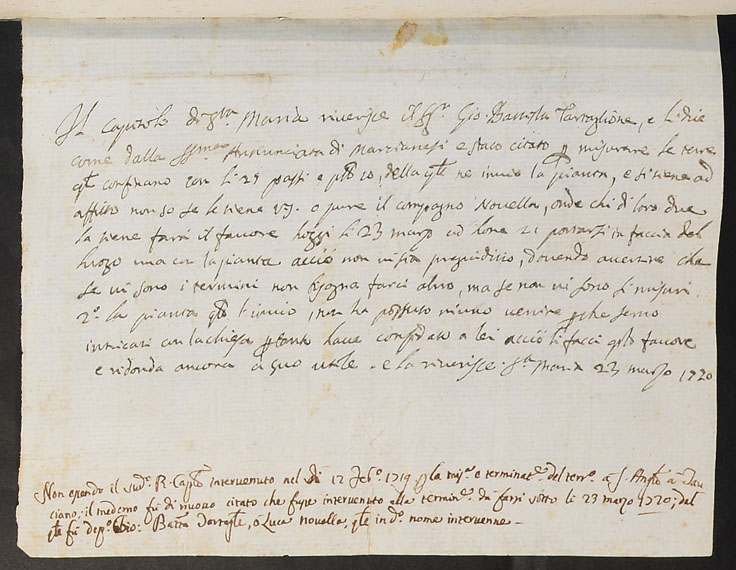 Il Capitolo di S.ta Maria riverisce il Sg.r Gio: Battista Tartaglione, e li dice
come dalla SS.ma Annunciata di Marcianesi e stato citato p misurare le terre
q̃li confinano con li 29 passi e q̃sto co, della q̃le ne invio la pianta, e si tiene ad
affitto non so se le tiene VS. o pure il compagno Novella, onde chi di loro due
la tiene farà il favore hoggi li 23 marzo ad hore 21 portarsi in faccia del
luogo una con la pianta acciò non vi sia pregiuditio, dovendo avertire che
se vi sono i termini non bisogna farci altro, ma se non vi sono si misuri
2.º la pianta q̃le l'invio, non ha possuto niuno venire p che semo
intricati con la chiesa p tanto have confidato a lei acciò li facci q̃sto favore
e ridonda ancora à suo utile . e la riverisce . S.ta Maria 23 marzo 1720
Non essendo il sud.º R. Cap.lo intervenuto nel dì 12 Feb.º 1719 p la mis.ª e terminat.ne del terr.º à S. Angelo a
ciano; il medemo fù di nuovo citato che fusse intervenuto alla termin.ne da farsi sotto li 23 marzo 1720; del
q̃le fù dep.º Gio: Batta Tartagle, o Luca Novella, q̃le in d.º nome intervenne –